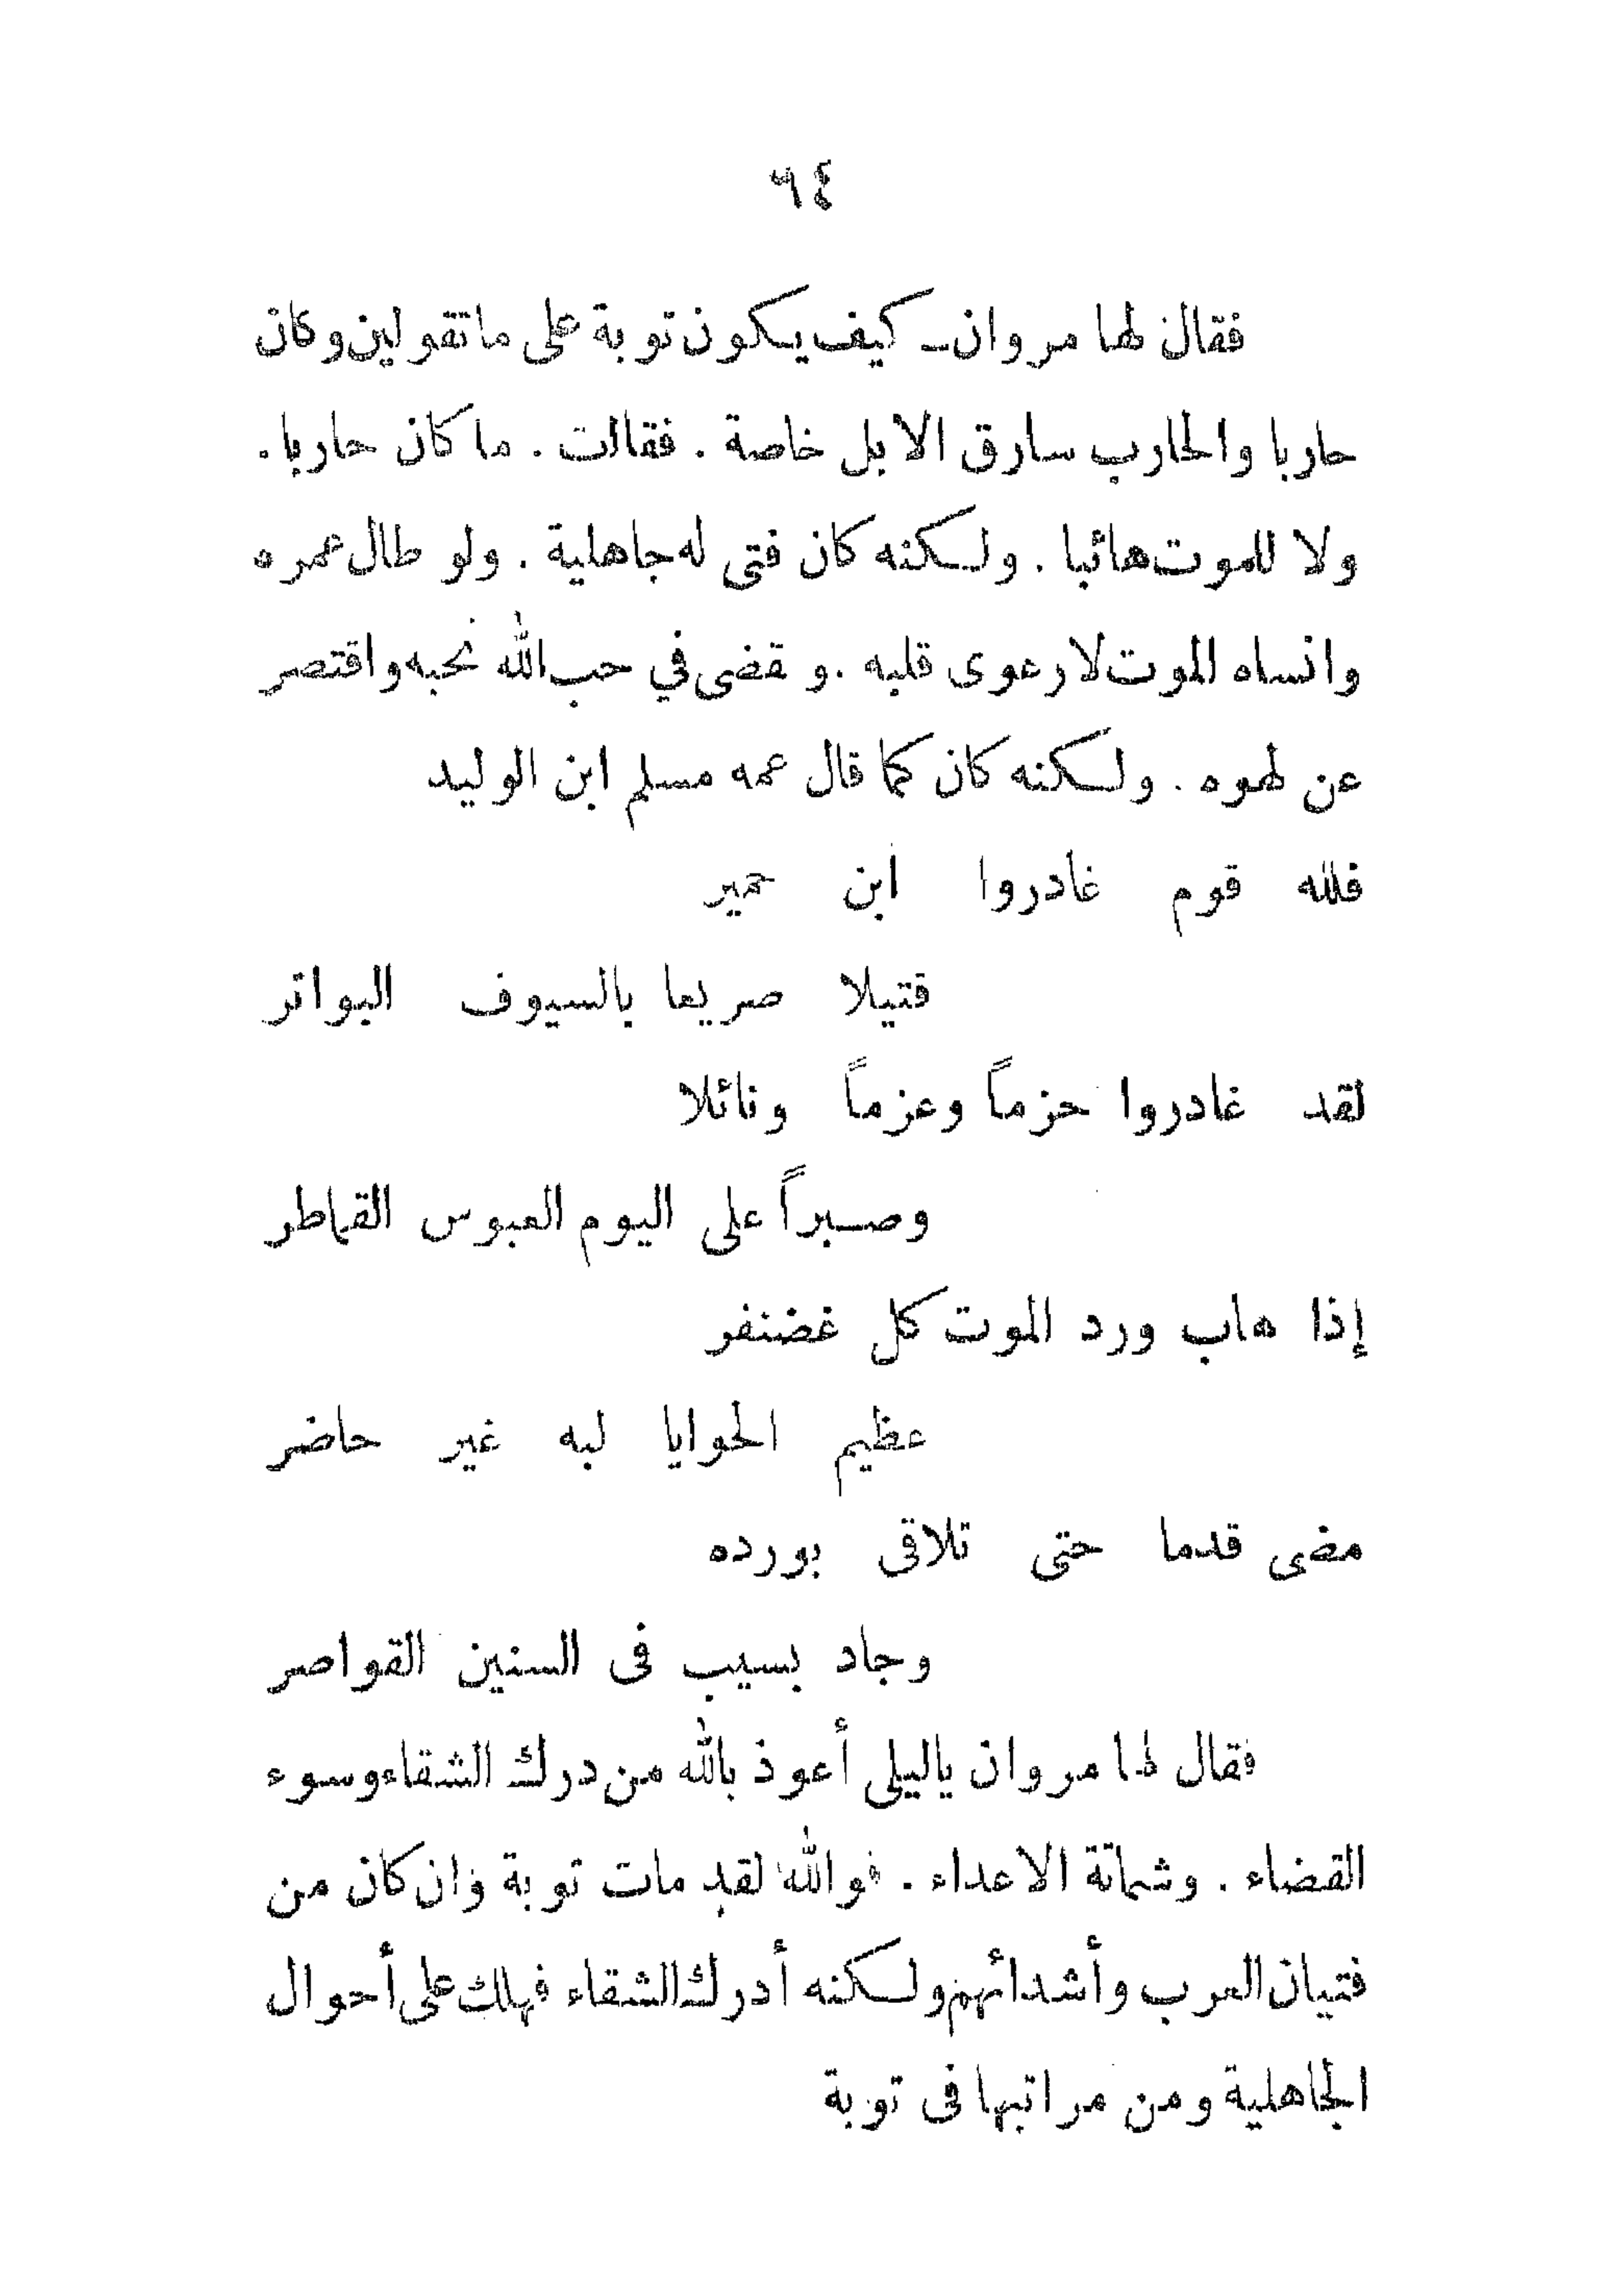 ٦٤
فقال لها مروان ـ كيف يكون توبة على ما تقولين وكان
حاربا والحارب سارق الابل خاصة . فقالت . ما كان حاربا .
ولا للموت هائبا . ولكنه كان فتى له جاهلية . ولو طال عمره
وانساه الموت لارعوى قلبه . و قضى في حب الله نحبه واقتصر
عن لهوه . ولكنه كان كما قال عمه مسلم ابن الوليد
فلله قوم غادروا ابن حمير
قتيلا صريعا بالسيوف البواتر
لقد غادروا حزماً وعزماً ونائلا
وصبراً على اليوم العبوس القماطر
إذا هاب ورد الموت كل غضنفر
عظيم الحوايا لبه غير حاضر
مضى قدما حتى تلاقى بورده
وجاد بسيب فى السنين القواصر
فقال لها مروان ياليلى أعوذ بالله من درك الشقاء وسوء
القضاء . وشماتة الاعداء . فوالله لقد مات توبة وان كان من
فتيان العرب وأشدائهم ولكنه أدرك الشقاء فهلك على أحوال
الجاهلية ومن مراتبها فى توبة